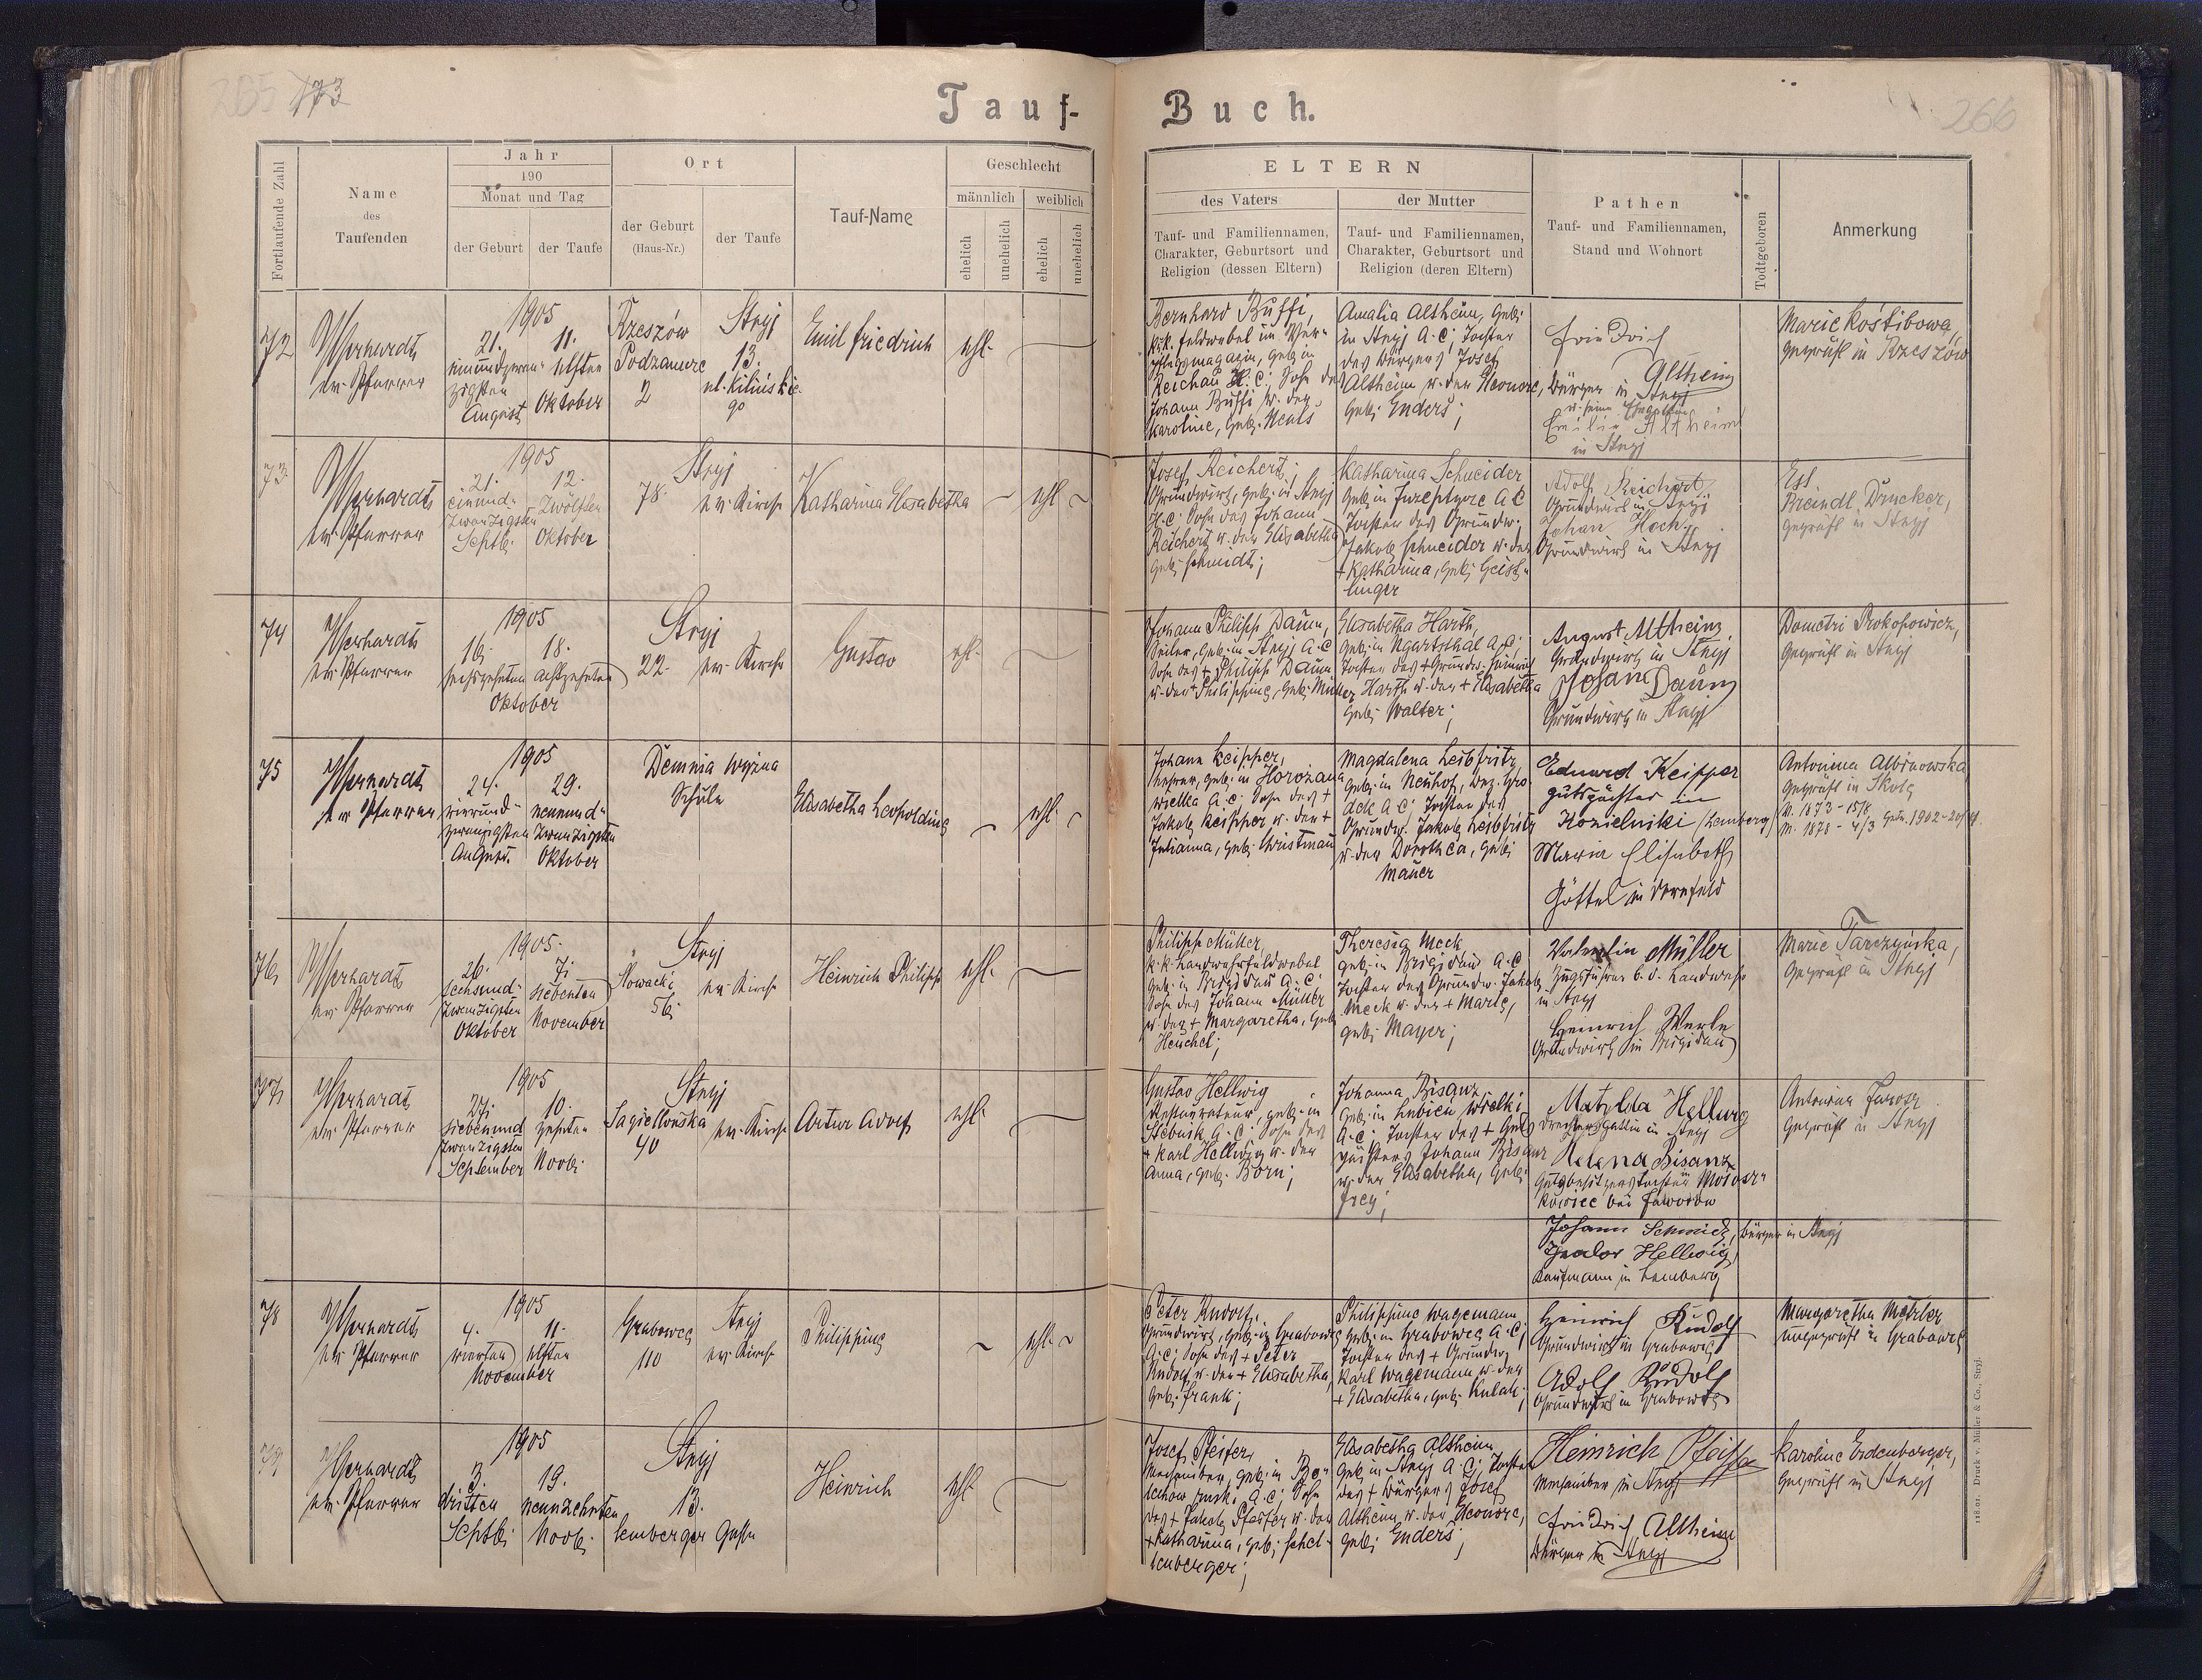 265 173
Tauf-
Fortlaufende Zahl
Name
des
Taufenden
Jahr
190
Monat und Tag
der Geburt
der Taufe
Ort
der Geburt
(Haus-Nr.)
der Taufe
Tauf-Name
Geschlecht
männlich
weiblich
ehelich
unehelich
ehelich
unehelich
72
ev. Pfarrer
1905
21.
einundzwan-
zigsten
August
11.
elften
Oktober
Rzeszów
Podzamcze
2
Stryj
13.
ul. Kilińskie-
go
Emil Friedrich
ehl.
73.
ev. Pfarrer
1905
21.
einund-
zwanzigsten
Septb.
12.
Zwölften
Oktober
Stryj
78.
ev. Kirche
Katharina Elisabetha
ehl
74
ev. Pfarrer
1905
16.
sechszehnten
18.
achtzehnten
Oktober
Stryj
22.
ev. Kirche
Gustav
ehl.
75
ev. Pfarrer
1905
24.
vierund-
zwanzigsten
August.
29.
neunund-
zwanzigsten
Oktober
Demnia wyżna
Schule
Elisabetha Leopoldine
ehl.
76
ev. Pfarrer
1905.
26.
sechsund-
zwanzigsten
Oktober
7.
siebenten
November
Stryj
Słowacki
56
ev. Kirche
Heinrich Philipp
ehl.
77
ev. Pfarrer
1905
27.
siebenund
zwanzigsten
September
10.
zehnten
Novb.
Stryj
Jagiellońska
40
ev. Kirche
Artur Adolf
ehl.
78
ev. Pfarrer
1905
4.
vierten
11.
elften
November
Grabowce
110
Stryj
ev. Kirche
Philippine
ehl.
79
ev. Pfarrer
1905
3.
dritten
Septb.
19.
neunzehnten
Novb.
Stryj
13.
Lemberger Gasse
Heinrich
ehl.
Buch.
266
ELTERN
des Vaters
Tauf- und Familiennamen,
Charakter, Geburtsort und
Religion (dessen Eltern)
der Mutter
Tauf- und Familiennamen,
Charakter, Geburtsort und
Religion (deren Eltern)
Pathen
Tauf- und Familiennamen,
Stand und Wohnort
Todtgeboren
Anmerkung
Bernhard Buffi,
k.k. Feldwebel im Ver-
pflegsmagazin, geb. in
Reichau H.C; Sohn des
Johann Buffi u. der
Karoline, geb.
Amalia Altheim, geb.
in Stryj A.C; Tochter
des Bürgers Josef
Altheim u. der Eleonore,
geb. Enders;
Friedrich
Altheim
Bürger in Stryj
u. seine
Emilie Altheim
in Stryj
Marie Kostibowa,
geprüft in Rzeszów
Josef Reichert,
Grundwirt, geb. in Stryj
H.C. Sohn des Johann
Reichert u. der Elisabetha
geb. Schmidt;
Katharina Schneider
geb. in Józefsberg A C
Tochter des Grundw.
Jakob Schneider u. der
+ Katharina, geb. Geist-
linger
Adolf Reichert
Grundwirt in Stryj
Johan Hoch
Grundwirt in Stryj
Preindl Drucker,
geprüft in Stryj
Johann Philipp Daum,
geb. in Stryj A.C
Sohn des + Philipp Daum
u. der + Philippine, geb. Müller
Elisabetha Harth,
geb. in Ugartsthal A.C;
Tochter des + Grundw. Heinrich
Harth u. der + Elisabetha
geb. Walter;
August Altheim
Grundwirt in Stryj
Johan Daum
Grundwirt in Stryj
Dometri Prokopowicz,
geprüft in Stryj
Johann Keipper,
Lehrer, geb. in Horożana
wielka A.C. Sohn des +
Jakob Keipper u. der +
Julianna, geb. Christmann
Magdalena Leibfritz
geb. in Neuhof, Bez. Gro-
dek A C; Tochter des
Grundw. Jakob Leibfritz
u. der Dorothea, geb.
Mauer
Eduard Keipper
Gutspächter in
Kozielniki (Lemberg)
Maria Elisabeth
Göttel in Dornfeld
Antonina Albinowska
geprüft in Skole
V. 1873 - 15/8
M. 1878 - 4/3
Philipp Müller,
k.k. Landwehrfeldwebel
geb. in Brigidau A.C.
Sohn des Johann Müller
u. der + Margaretha, geb.
Heuchel;
Theresia Meck
geb. in Brigidau A.C
Tochter des Grundw. Jakob
Meck u. der + Marie,
geb. Mayer;
Valentin Müller
Zugsführer b. d. Landwehr
in Stryj
Heinrich Werle
Grundwirt in Brigidau
Marie Tarczyńska,
geprüft in Stryj
Gustav Hellwig
Restaurateur, geb. in
Stebnik A.C; Sohn des
+ Karl Hellwig u. der
Anna, geb. Born;
Johanna Bisanz
geb. in Lubień wielki
A.C. Tochter des + Guts
pächters Johann Bisanz
u. der Elisabetha, geb.
Frey;
Matylda Hellwig
in Stryj
Helena Bisanz
Gutsbesitzerstochter
bei Jaworow
Johann Schmidt, Bürger in Stryj
Isador Hellwig,
Kaufmann in Lemberg
geprüft in Stryj
Peter Rudolf,
Grundwirt, geb. in Grabowce
A.C; Sohn des + Peter
Rudolf u. der + Elisabetha,
geb. Frank;
Philippine Wagemann
geb. in Grabowce A.C;
Tochter des + Grundw.
Karl Wagemann u. der
+ Elisabetha, geb. Kulak;
Heinrich Rudolf
Grundwirt in Grabowce
Adolf Rudolf
Grundwirt in Grabowce
Margaretha Metzler
ungeprüft in Grabowce
Josef Pfeifer,
Mechaniker, geb. in Bo-
lechow rusk. A.C; Sohn
des + Jakob Pfeifer u. der
+ Katharina, geb. Schel-
lenberger;
Elisabetha Altheim
geb. in Stryj A.C; Tochter
des + Bürgers Josef
Altheim u. der Eleonore,
geb. Enders;
Heinrich Pfeiffer
Mechaniker in Stryj
Friedrich Altheim
Bürger in Stryj
Karoline Erdenberger,
geprüft in Stryj
118.01. Druck v. Müller & Co., Stryj.